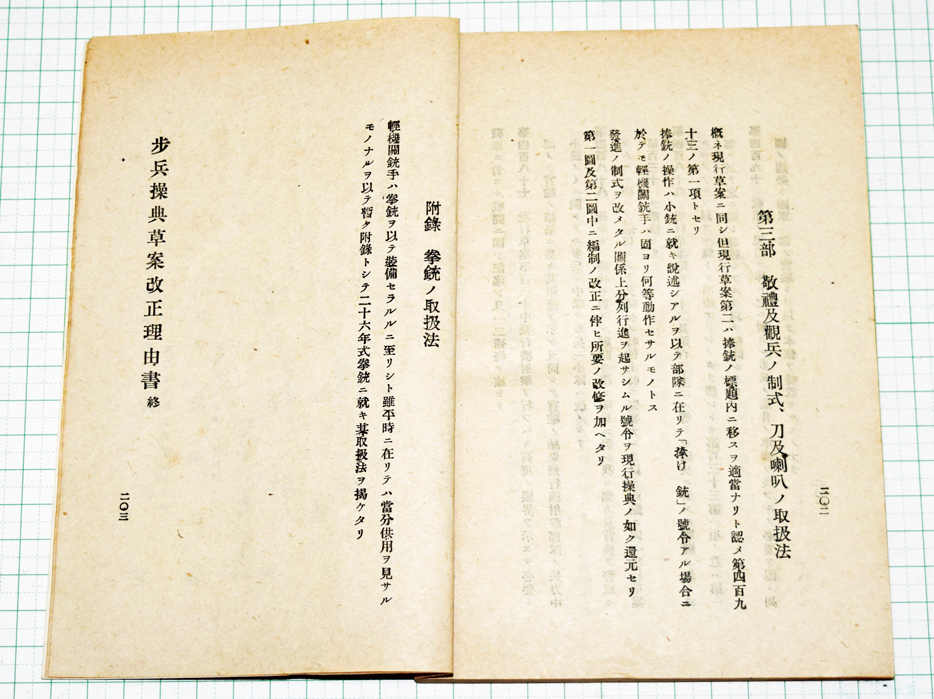 第三部 敬禮及觀兵ノ制式、刀及喇叭ノ取扱法
概ネ現行草案ニ同シ但現行草案第二ハ捧銃ノ標題內ニ移スヲ適當ナリト認メ第四百九
十三ノ第一項トセリ
捧銃ノ操作ハ小銃ニ就キ說述シアルヲ以テ部隊ニ在リテ「捧け 銃」ノ號令アル場合ニ
於テモ輕機關銃手ハ固ヨリ何等動作セサルモノトス
發進ノ制式ヲ改メタル關係上分列行進ヲ起サシムル號令ヲ現行操典ノ如ク還元セリ
第一圖及第二圖中ニ編制ノ改正ニ伴ヒ所要ノ改修ヲ加ヘタリ
二〇二
附錄 拳銃ノ取扱法
輕機關銃手ハ拳銃ヲ以テ裝備セラルルニ至リシト雖平時ニ在リテハ當分供用ヲ見サル
モノナルヲ以テ暫ク附錄トシテ二十六年式拳銃ニ就キ其取扱法ヲ揭ケタリ
步兵操典草案改正理由書 終
二〇三